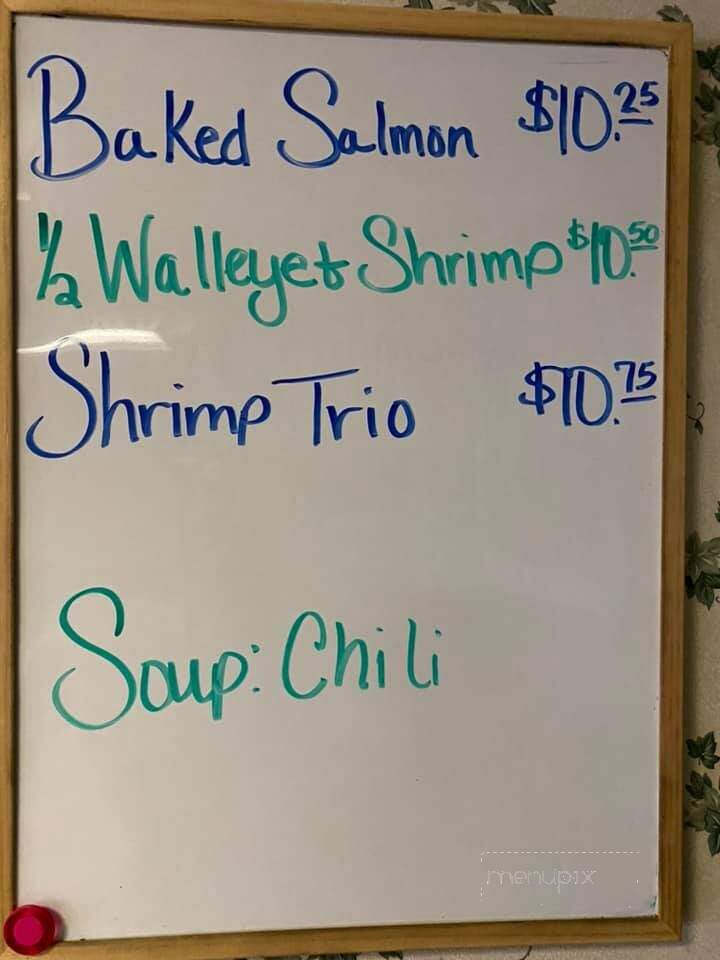 Baked Salmon $10.25
1/2 Walleye & Shrimp $10.50
Shrimp Trio $10.75
Soup: Chili
menupix